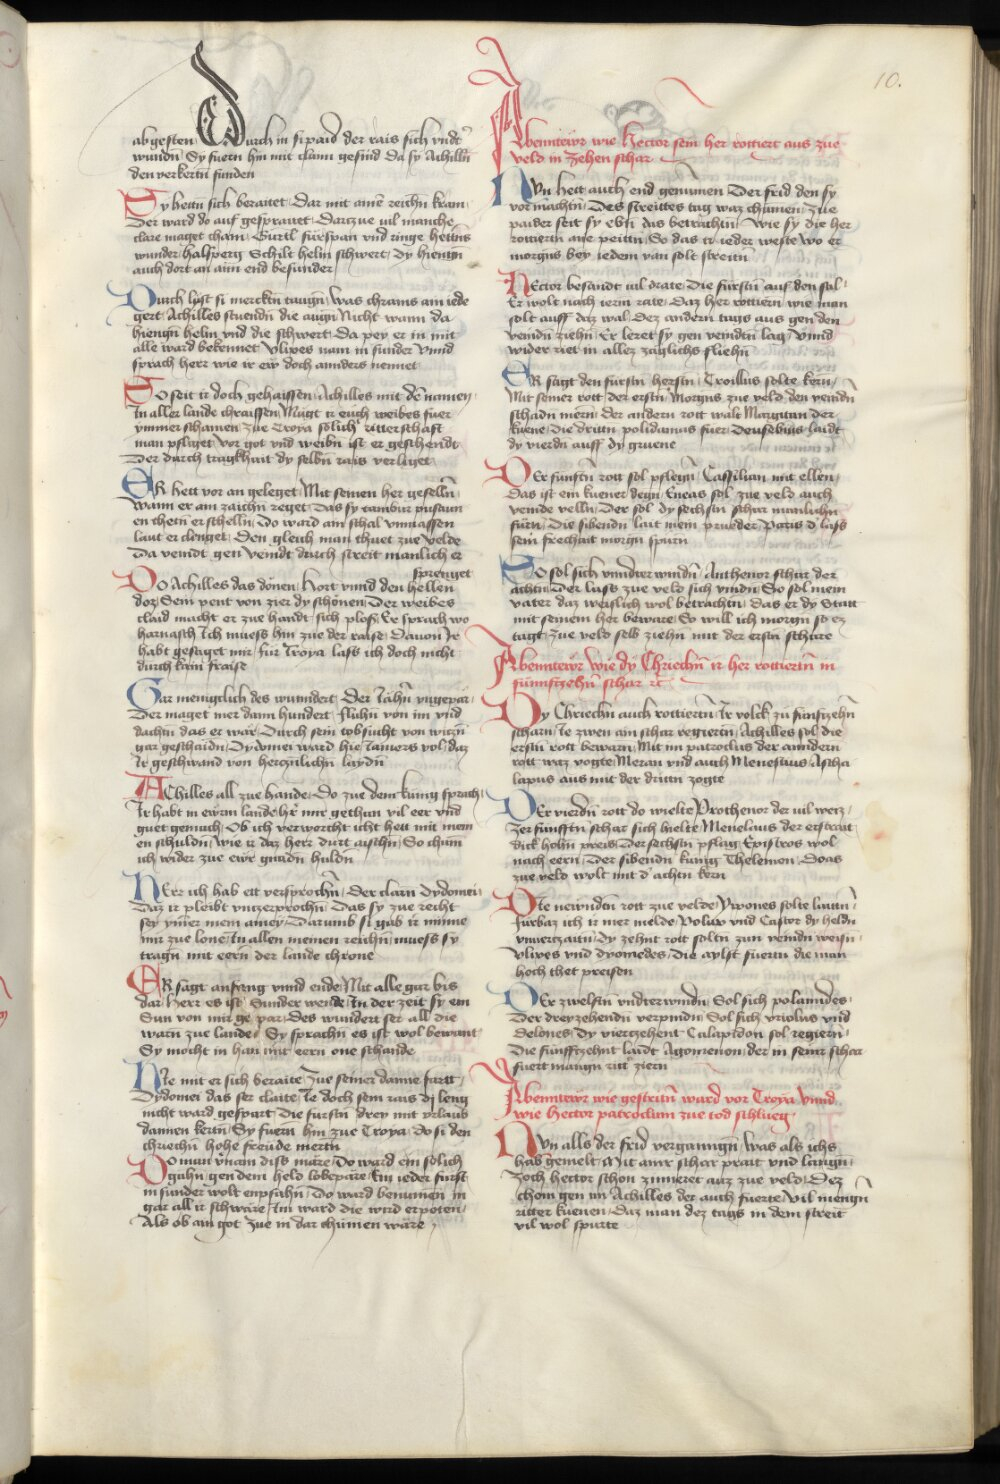 10.
ab gesten Durch in si paid der rais sich vndt'
wundn̄ Sy fuetn hin mit clain gesind da sy Achilln̄
den verkertn̄ funden
Sy hettn̄ sich beraitet Dar mit aine reichn̄ kram
Der ward do auf gesprantet Dar zue vil manche
clare maget cham Gurtl fürspan vnd ringe hettn̄s
wunder halsperg Schilt helm schwert Dy hiengn̄
auch dort an aim end besunder
Durch lyst si mercktn̄ taugn̄ Was chrams ain iede
gert Achilles stuendn̄ die augn̄ Nicht wann da
hiengn̄ helm vnd die schwert Da pey er in mit
alle ward bekennet Vlixes nam in sunder Vnnd
sprach herr wie ir ew doch annders nennet
So seit ir doch gehaissen Achilles mit dē namen
In aller lande chraissen Mügt ir euch weibes fuer
ymmer schamen Zue Troya sölich ritterschaft
man pfliget Vor got vnd weibn̄ ist er geschendt
Der durch tragkhait dy selbn̄ rais verliget
Er hett vor an geleget Mit seinen her geselln̄
Wann er am zaichn̄ reget Das sy tambur pusaun
en thetn̄ erschelln̄ Do ward ain schal vnmassen
laut er clenget Den gleich man thuet zue velde
Da veindt gen veindt durch streit manlich er
sprenget
Do Achilles das dönen Hort vnnd den hellen
doz Sein pent von zier dy schönen Der weibes
claid macht er zue handt sich plos Er sprach wo
harnasch Ich muess hin zue der raise Dauon Ir
habt gesaget mir für Troya lass ich doch nicht
durch kain fraise
Gar menigclich des wunndert Der Jähn̄ vngepär
Der maget mer dann hundert fluhn̄ von im vnd
dachtn das er wär Durch sein tobsucht von witzn̄
gar geschaidn̄ Dydomei ward hie Jamers vol daz
Ir geschwand von hertznlichn̄ laydn̄
Achilles all zue hande Do zue dem kunig sprach
Ir habt in ewrm lande hie mir gethan vil eer vnd
guet gemach Ob ich verworcht icht hett mit mein
en schuldn̄ Wie ir daz herr durt aischn̄ So chum
ich wider zue ewr gnadn̄ huldn̄
Herr ich hab ett versprochn̄ Der clarn Dydomei
Daz ir pleibt vntzerprochn̄ Das sy zue recht
sey ymer mein amey Darumb si gab ir minne
mir zue lone In allen meinen reichn̄ muess sy
tragn̄ mit eern̄ der lande chrone
Er sagt anfang vnnd ende Mit alle gar bis
dar Herr es ist Sunder wende In der zeit sy ein
Sun von mir ge par Des wundert ser all die
warn̄ zue lande Sy sprachn̄ es ist wol bewant
Sy mocht in han mit eern one schande
Hie mit er sich beraite Zue seiner danne fartt
Dydomei das ser claite Ie doch sein rais di leng
nicht ward gespart Die furstn̄ drey mit vrlaub
dannen kertn̄ Sy fuern̄ hin zue Troya Do si den
chriechn̄ hohe freude mertn̄
Do man vnam diss märe Do ward ein sölich
gahn̄ gen dem held lobepäre Ein ieder furst
in sunder wolt empfahn̄ Do ward benumen in
gar all ir schwäre Im ward die wird erpoten
Als ob ain got Zue in dar chumen wäre
Abenntewr wie Hector sein her rottiert aus zue
veld in Zehen schar
Nun hett auch end genumen Der frid den sy
vor machtn̄ Des streittes tag waz chumen Zue
paider seit sy ebn̄ das betrachtn̄ Wie sy die her
rottiertn̄ ane peittn̄ So das ir ieder weste wo er
morgns bey iedem van solt streittn̄
Hector besandt vil drate Die fürstn̄ auf den sal
Er wolt nach ierm rate Daz her rottiern̄ wie man
solt auff daz wal Dez andern tags aus gen den
veindn̄ ziehn̄ Er leret sy gen veindtn̄ lag Vnnd
wider riet in allez zäglichs fliehn̄
Er sagt den fürstn̄ herstn̄ Troillus solte kern
Mit seiner rott der erstn̄ Morgns zue veld den veindn̄
schadn̄ mern̄ der andern rott walt Margitan der
kuene Die drittn̄ polidamas fuer Deusebius laidt
dy vierdn̄ auff dy gruene
Der funftn̄ rott sol pflegn̄ Cassilian mit ellen
Das ist ein kuener degn̄ Eneas sol zue veld auch
veinde velln̄ Der sol dy sechstn̄ schar manlichn̄
fürn̄ Die sibendn̄ lait mein prueder Paris d' lass
sein frechait morgn spurn
So sol sich vnndterwindn̄ Anthenor schar der
achtn̄ Der lass zue veld sich vindn̄ So sol mein
vater daz weislich wol betrachtn̄ Das er dy Statt
mit seinem her beware So will ich morgn̄ so ez
taget Zue veld selb ziehn̄ mit der erstn schare
Abenntewr wie dy Chriechn̄ ir her rottiertn̄ in
fünnftzehn̄ schar ꝛc
Dy Chriechn auch rottiertn̄ Ir volck zu funftzehn̄
scharn̄ Ie zwen ain schar regiertn̄ Achilles sol die
erstn̄ rott bewarn̄ Mit im patroclus der anndern
rott waz vogte Meran vnd auch Menesteus Ascha
lapus aus mit der drittn̄ zogte
Der vierdn̄ rott do wielte Prothenor der vil wetz
Zer funfftn̄ schar sich hielte Menelaus der erstrait
dick hohn̄ preis Der sechstn̄ pflag Epistros wol
nach eern̄ Der sibendn̄ kunig Thelemon Doas
zue veld wolt mit d' achtn̄ kern
Die newndn̄ rott zue velde Ywones solte laittn̄
furbaz ich ir mer melde Polux vnd Castor dy heldn̄
vnuertzaitn̄ Dy zehnt rott soltn̄ zun veindn̄ weisn̄
Vlixes vnd dyomedes Die aylft fuertn̄ die man
hoch thet preisen
Der zwelftn̄ vndterwindn̄ Sol sich polamides
Der dreyzehendn̄ verpindn̄ Sol sich vriolus vnd
Delones Dy viertzehent Calapidon sol regiern̄
Die funfftzehnt laidt Agomenon der in seinr schar
fuert mangn̄ rittr ziern
Abenntewr wie gestritn̄ ward vor Troya Vnnd
wie Hector patroclum zue tod schlueg
Nun alls der frid vergangn̄ Was als ichs
hab gemelt Mit ainr schar prait vnd langn̄
Zoch hector schon zimieret auz zue veld Dez
chom gen im Achilles der auch fuerte Vil mengn̄
ritter kuenen Daz man dez tags in dem streit
vil wol spurte